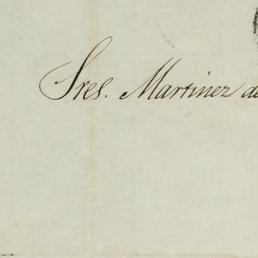 Sres. Martinez de